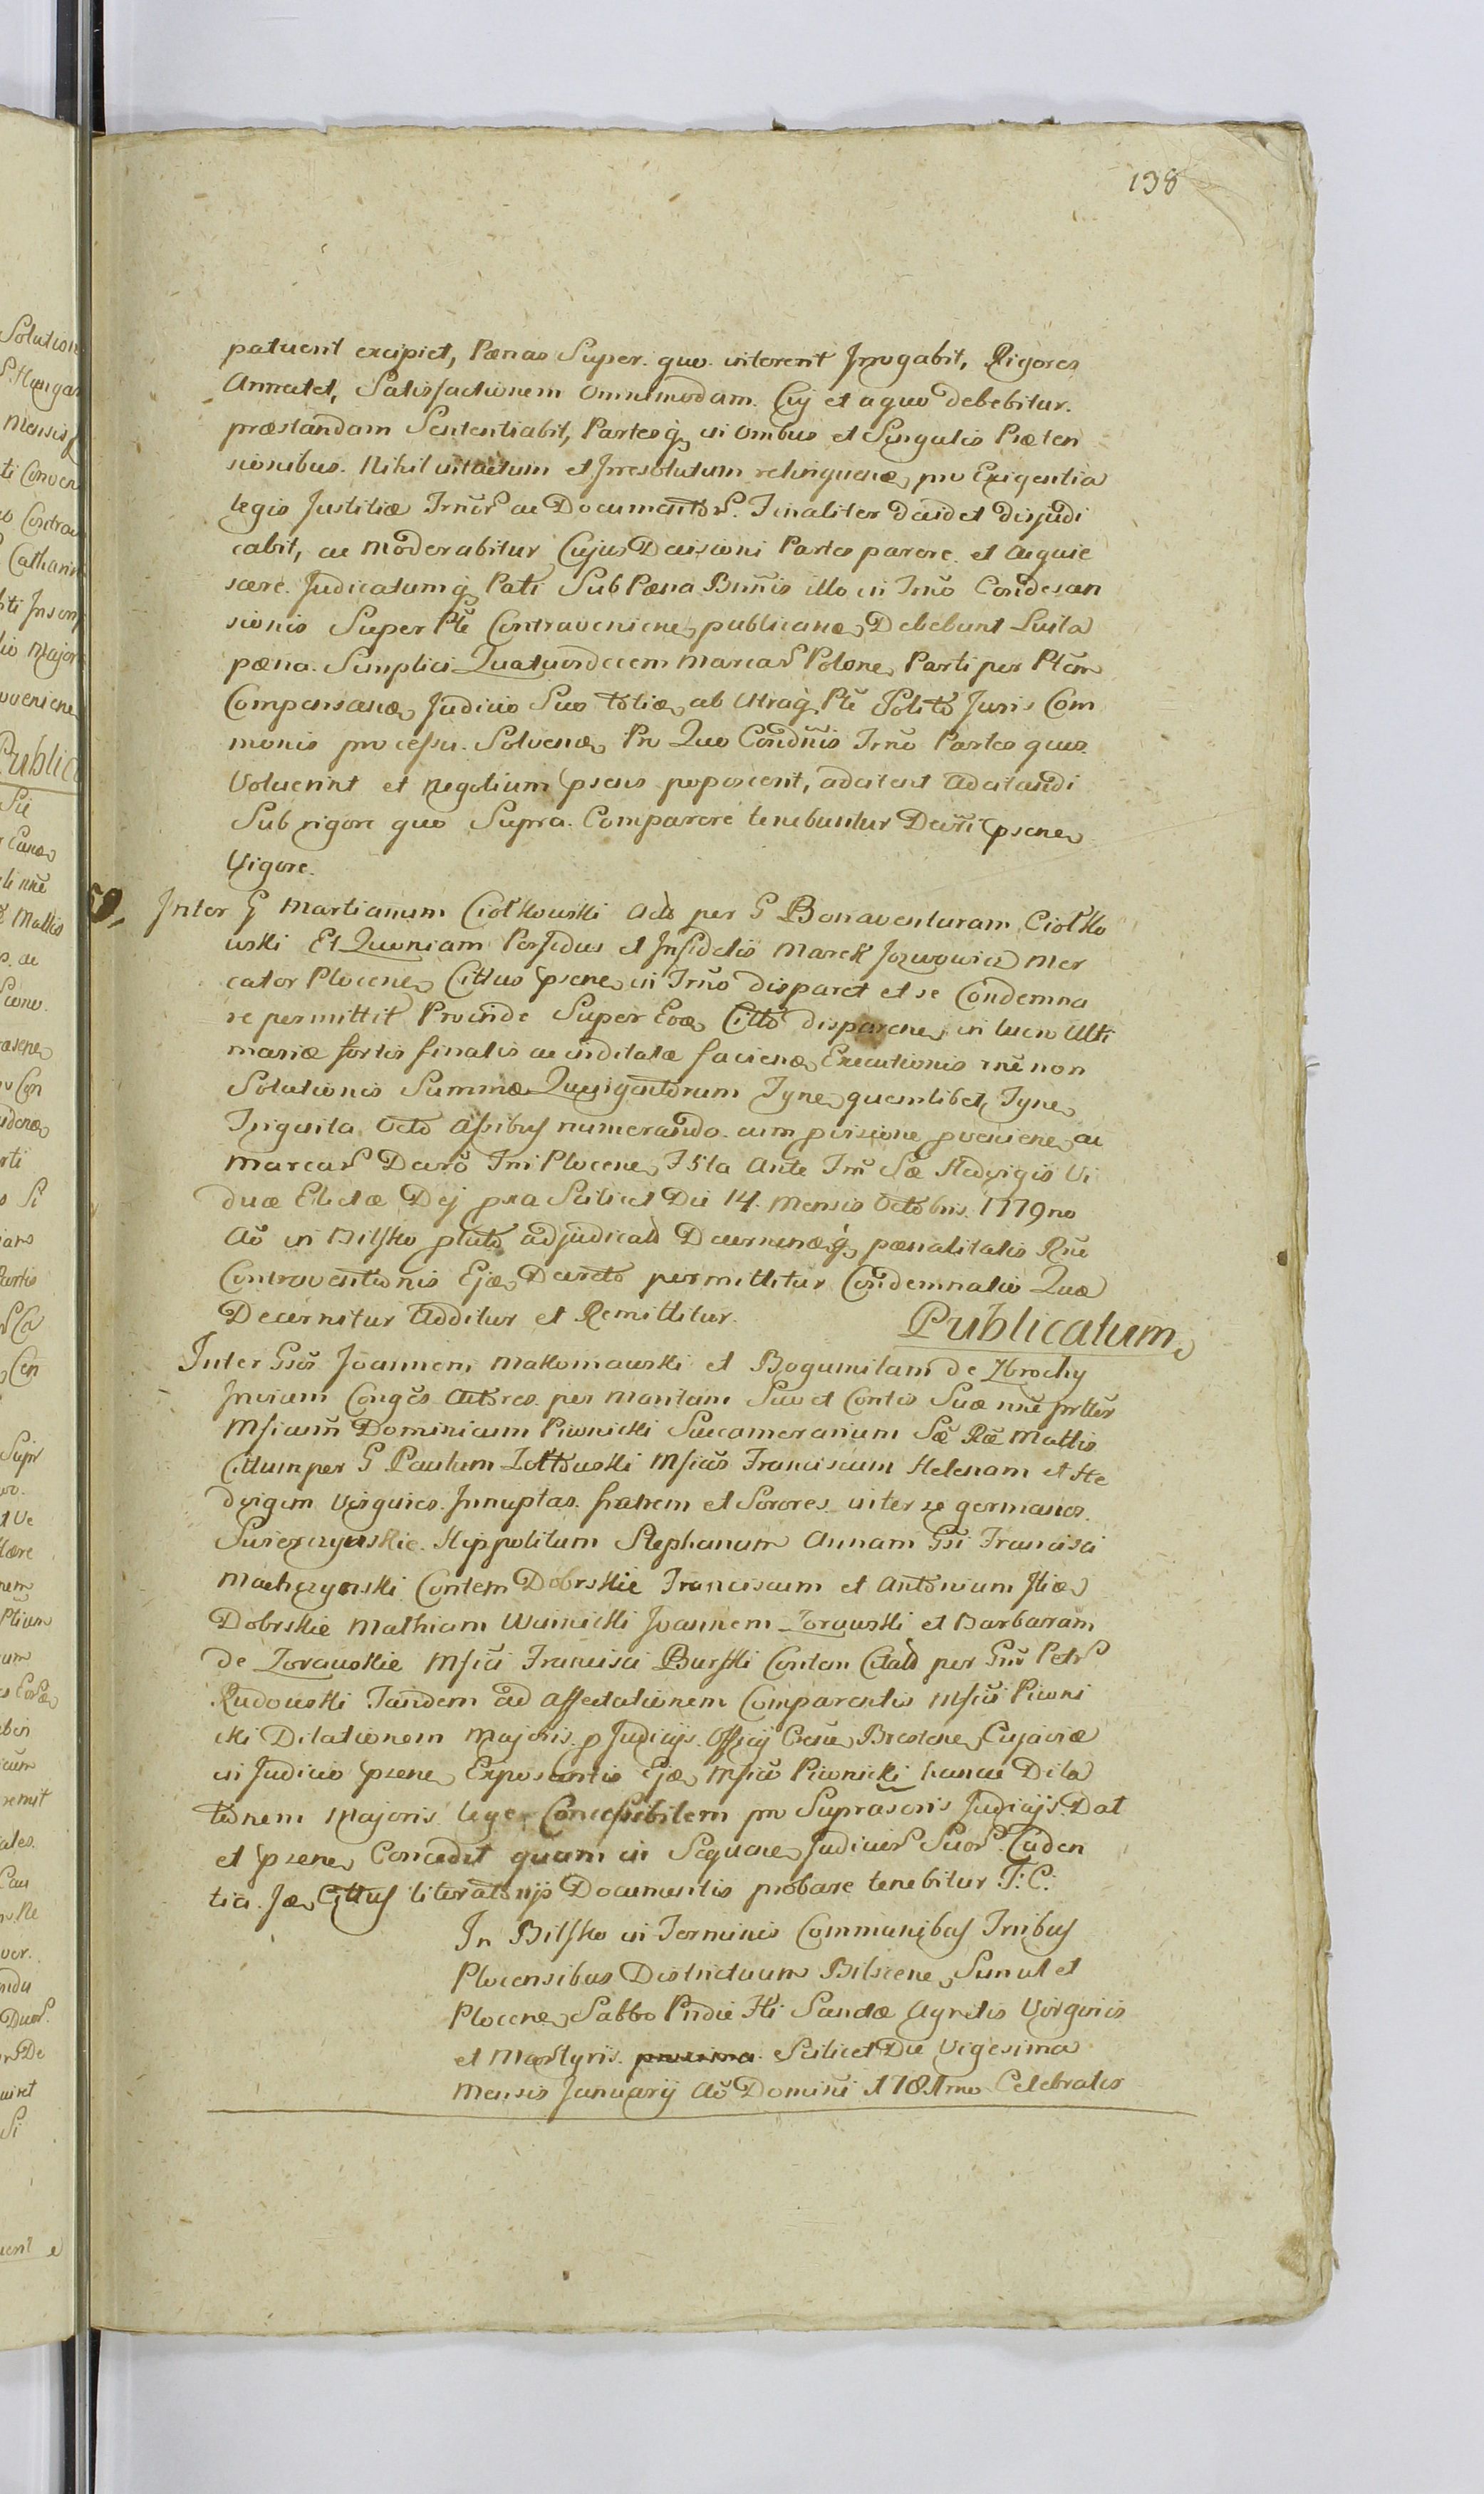 138
patuerit excipiet, Pænas Super. quo. intererit Irrogabit, Rigores
Annectet, Satisfactionem omnimodam. Cuj et a quo debebitur.
præstandam Sententiabit, Partesq in Omibus et Singulis Præten
sionibus. Nihil intactum et Irresolutum relinquenæ, pro Exigentia
legis Justitiæ Trnõr ac Documentor. Finaliter decidet disjudi
cabit, ac Moderabitur Cujus Decisioni Partes parere. et acquie
scere. Judicatumq Pati Sub Pæna Bnnis illo in Trno Condescen
sionis Super Pte Contraveniene publicanæ, Debebunt Luita
pæna. Simplici Quatuordecem Marcar Polone, Parti per Ptem
Compensanæ, Judicio Suo toties ab Utraq Pte Solito Juris Com
monis processu. Solvenæ, Pro Quo Condnis Trno Partes quos.
Voluerint et negotium psens poposcerit, adcitent adcitandi
Sub rigore quo Supra. Comparere tenebuntur Decrti psene
Vigore.
50. Inter G Martianum Ciołkowski Actô per G Bonaventuram Ciołko
wski Et Quoniam Perfidus et Infidelis Marek Jozwowicz Mer
cator Plocene, Cittus psene, in Trno disparet et se Condemna
re permittit Proinde Super Eoæ Cittô disparene, in lucro Ulti
mariæ fortis finalis ac inditatæ facienæ, Executionis rne non
Solutionis Summæ Quingentorum Tyne, quemlibet, Tyne,
Triginta Octo Assibus numerando. cum pvisione pveniene, ac
Marcar Decrô Tni Plocene, Fsta Ante Trm Sæ Hedvigis Vi
duæ Electæ Dej pxa Scilicet Die 14. Mensis Octobris. 1779no
Aô in Bilsko plato adjudicatô Decernenæq pænalitatis Rne
Contraventionis Ejæ, Decreto permittitur Condemnatio Quæ
Decernitur Additur et Remittitur.
Publicatum,
Inter Gsôs Joannem Makomawski et Bogumilam de Zbrochy
Invicem Conges Actores. per Maritum Suo et Contis Suæ nne prtter
Mficum Dominicum Piwnicki Succamerarium Sæ Ræ Mattis
Cittum per G Paulum Zołtowski Mficûs Franciscum Helenam et He
dvigem Virgines. Innuptas. fratrem et Sorores. inter se germanos.
Swierczynskie. Hippolitum Stephanum Annam Gsi Francisci
Machczynski Contem Dobrskie Franciscum et Antonium Iliæ
Dobrskie Mathiam Winnicki Joannem Zorawski et Barbaram
de Zorawskie Mfici Francisci Burski Contem Citatô per Gnr Petr
Rudowski Tandem ad Affectationem Comparentis Mfici Piwni
cki Dilationem Majoris. p Judicijs. Officij Csne, Brestene, Cujaviæ
in Judicio psene, Exposcentis Ejæ, Mfici Piwnicki hancce Dila
tionem Majoris. lege, Concessibilem pro Suprascris Judicijs. Dat
et psene, Concedit quam in Sequene, Judicior Suor. Caden
tia. Jæ, Cittus literatorijs Documentis probare tenebitur T: C:
In Bilsko in Terminis Communibus Tribus
Plocensibus Districtuum Bilscene, Simul et
Plocene, Sabbo Pridie Fti Sanctæ Agnetis Virginis
et Martyris. proxima. Scilicet Die Vigesima
Mensis Januarij Aô Domini 1781mo Celebratis